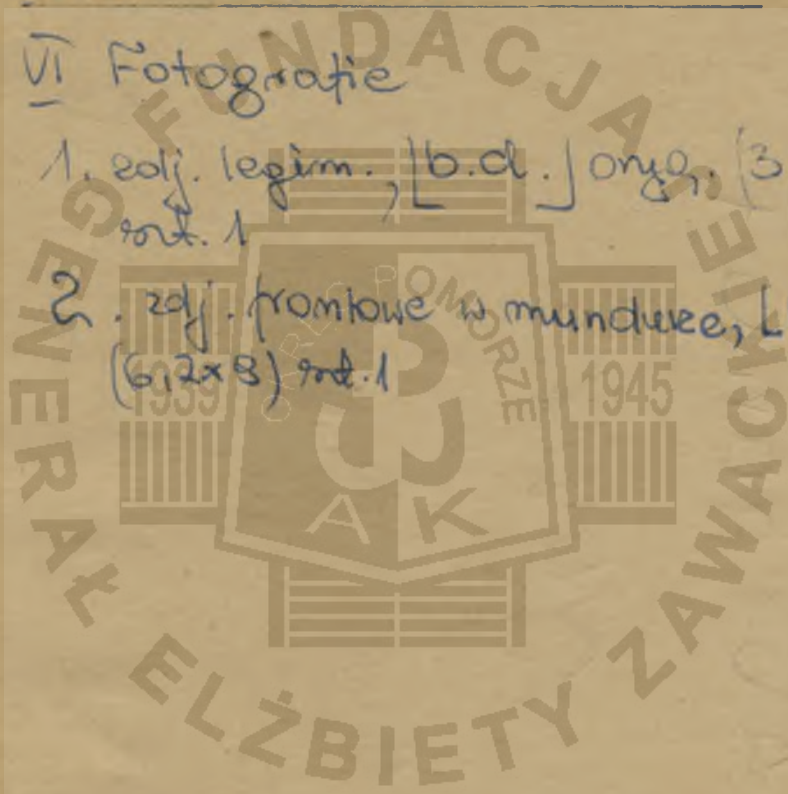 VI Fotografie
1. zdj. legim., [b.d.] oryg. (3
szt. 1
2. zdj. frontowe w mundurze, [
(6,2x9) szt. 1
FUNDACJA GENERAŁ ELŻBIETY ZAWACKIEJ
OKRĘG POMORZE
1939
1945
A K